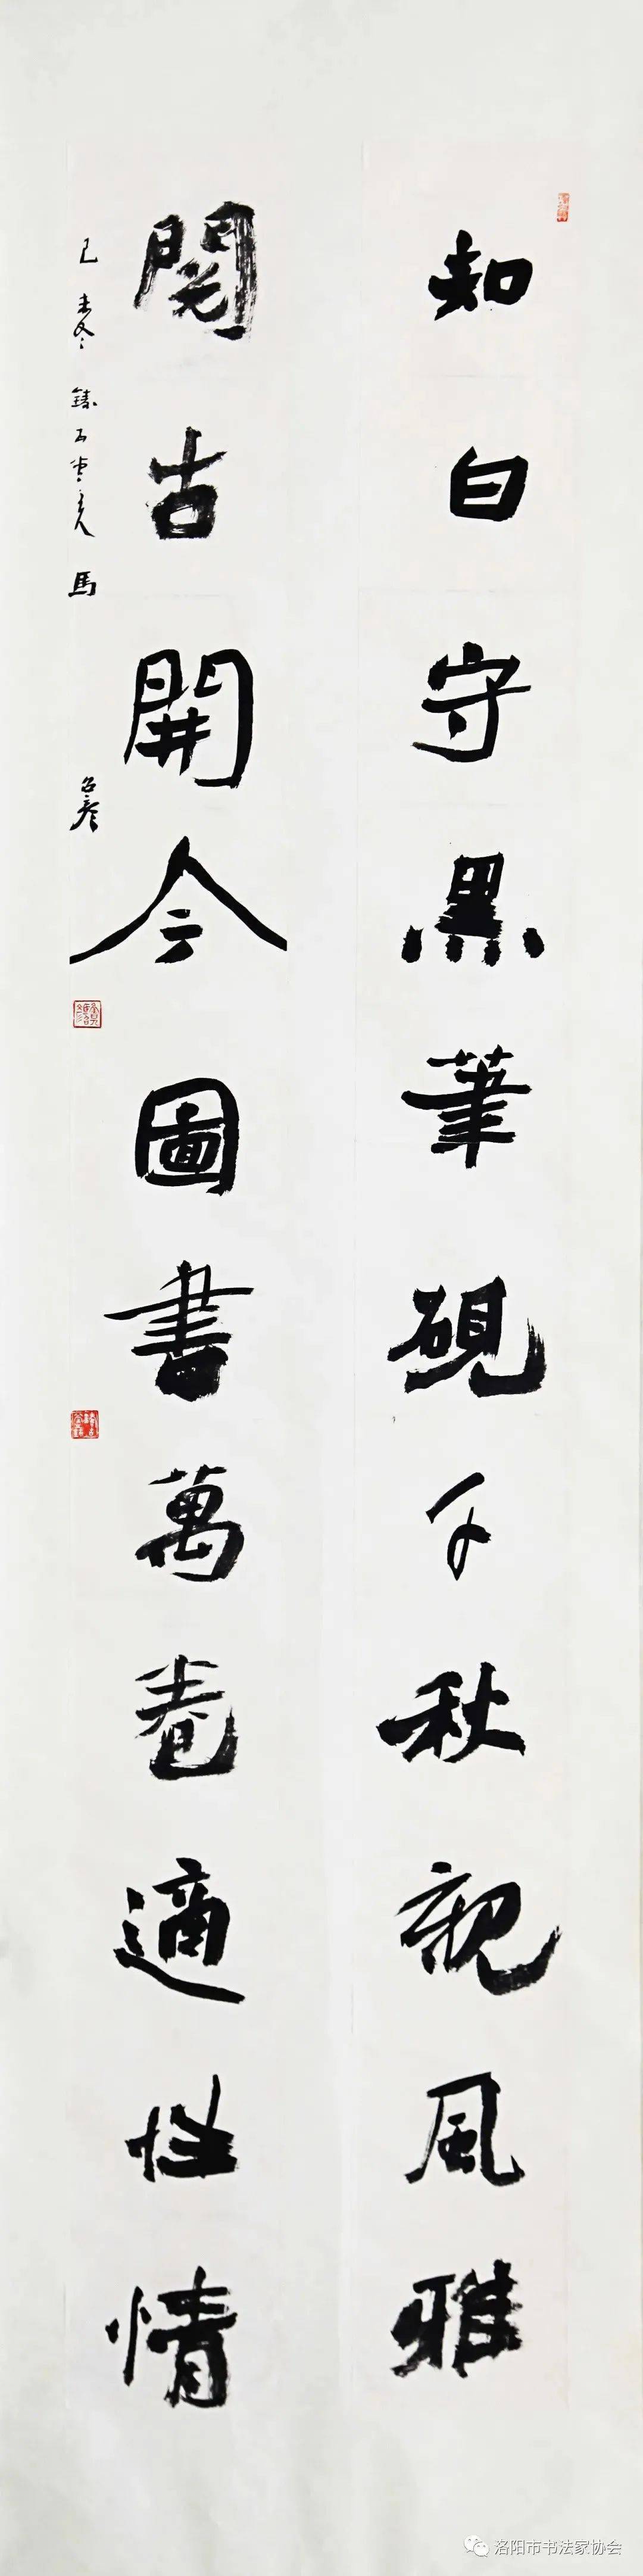 知白守黑筆硯千秋親風雅
閱古開今圖書萬卷適性情
己亥冬鑄石堂主人馬
洛阳市书法家协会